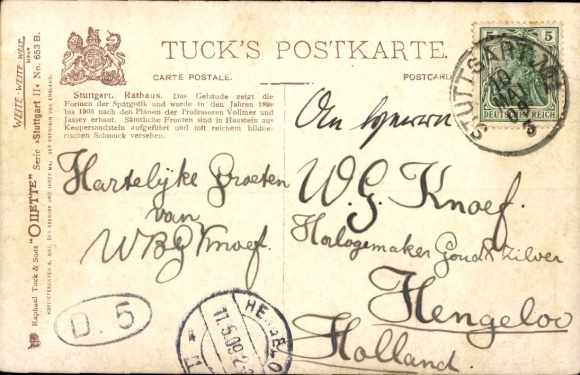 TUCK'S POSTKARTE.
CARTE POSTALE.
POSTCARD
Stuttgart. Rathaus. Das Gebäude zeigt die
Formen der Spätgotik und wurde in den Jahren 1899
bis 1905 nach den Plänen der Professoren Vollmer und
Jassoy erbaut. Sämtliche Fronten sind in Haustein aus
Keupersandstein aufgeführt und mit reichem bildne-
rischen Schmuck versehen.
WEITE-WEITE-WELT
Raphael Tuck & Sons "OILETTE" Serie »Stuttgart II« No. 653 B.
5
DEUTSCHES REICH
STUTTGART
10
MAI
09
Hartelijke Groeten
van
WBG Knoef.
An
W. G. Knoef.
Horlogemaker Goud & Zilver
Hengeloo
Holland.
D. 5
HENGELO
11.5.09